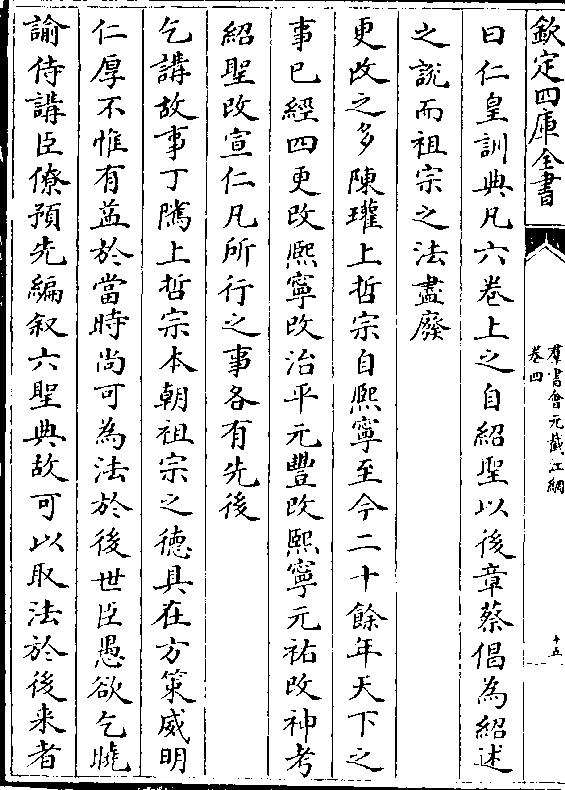 欽定四庫全書
羣書會元截江網
卷四
十五
曰仁皇訓典凡六卷上之自紹聖以後章蔡倡為紹述
之說而祖宗之法盡廢
更改之多陳瓘上哲宗自熙寧至今二十餘年天下之
事已經四更改熙寧改治平元豐改熙寧元祐改神考
紹聖改宣仁凡所行之事各有先後
乞講故事丁隲上哲宗本朝祖宗之德具在方策威明
仁厚不惟有益於當時尚可為法於後世臣愚欲乞曉
諭侍講臣僚預先編叙六聖典故可以取法於後来者